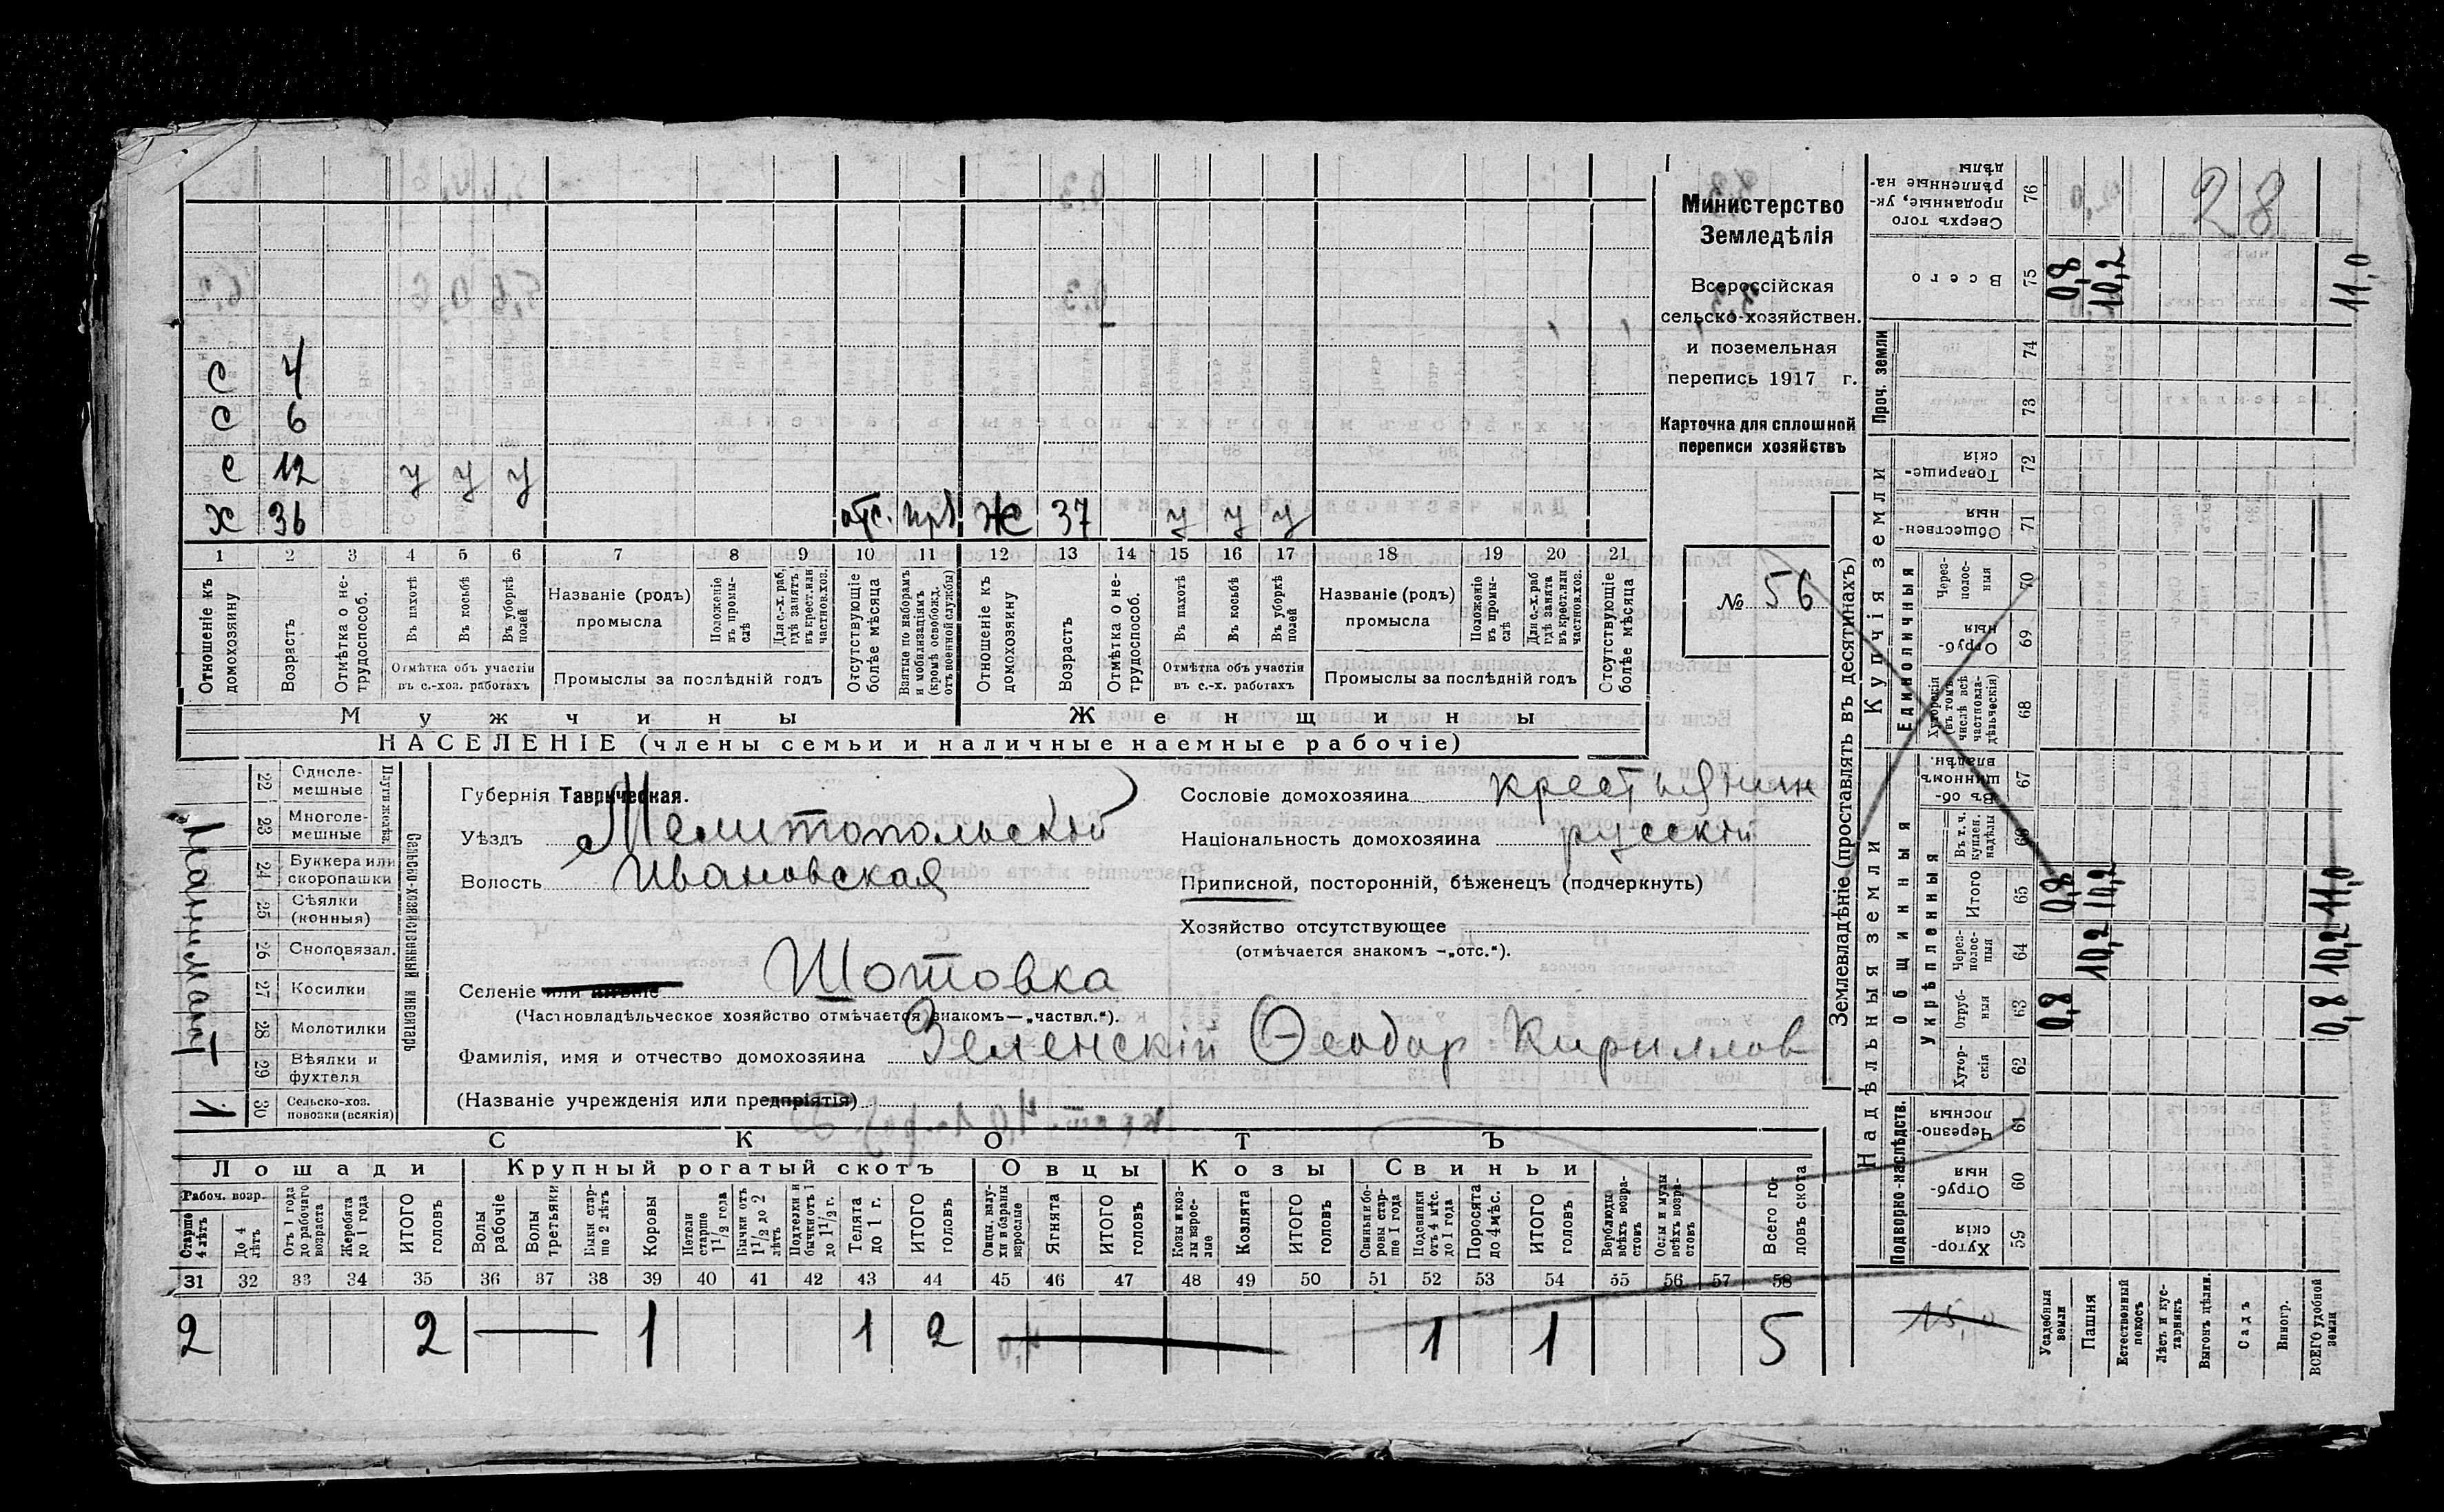 С 4
С 6
С 12 у у у
Х 36 отс. Ж 37 у у у
1 2 3 4 5 6 7 8 9 10 11 12 13 14 15 16 17 18 19 20 21
Отношеніе къ домохозяину
Возрастъ
Отмѣтка о не-трудоспособ.
Въ пахотѣ
Въ косьбѣ
Въ уборкѣ полей
Отмѣтка объ участіи въ с.-хоз. работахъ
Названіе (родъ) промысла
Положеніе въ промы-слѣ
Для с.-х. раб. гдѣ занятъ въ крест. или частнов. хоз.
Промыслы за послѣдній годъ
Отсутствующіе болѣе мѣсяца
Взятые по наборамъ и мобилизаціямъ (кромѣ освобожд. отъ военной службы)
Отношеніе къ домохозяину
Возрастъ
Отмѣтка о не-трудоспособ.
Въ пахотѣ
Въ косьбѣ
Въ уборкѣ полей
Отмѣтка объ участіи въ с.-х. работахъ
Названіе (родъ) промысла
Положеніе въ промы-слѣ
Для с.-х. раб гдѣ занята въ крест. или частнов. хоз.
Промыслы за послѣдній годъ
Отсутствующіе болѣе мѣсяца
Мужчины Женщины
НАСЕЛЕНІЕ (члены семьи и наличные наемные рабочіе)
Министерство
Земледѣлія
Всероссійская
сельско-хозяйствен.
и поземельная
перепись 1917 г.
Карточка для сплошной
переписи хозяйствъ
№ 56
22 Одноле-мешные
23 Многоле-мешные
24 Буккера или скоропашки
25 Сѣялки (конныя)
26 Сноповязал.
27 Косилки
28 Молотилки
29 Вѣялки и фухтеля
30 Сельско-хоз. повозки (всякія)
Сельско-хозяйственный инвентарь
1
Губернія Таврическая.
Уѣздъ Мелитопольскій
Волость Ивановская
Селеніе или имѣніе Шотовка
(Частновладѣльческое хозяйство отмѣчается знакомъ—„частвл.“).
Фамилія, имя и отчество домохозяина Зеленскій Ѳеодор Кириллов
(Названіе учрежденія или предпріятія)
Сословіе домохозяина крестьянин
Національность домохозяина русскій
Приписной, посторонній, бѣженецъ (подчеркнуть)
Хозяйство отсутствующее
(отмѣчается знакомъ —„отс.“).
СКОТЪ
Лошади Крупный рогатый скотъ Овцы Козы Свиньи
Рабоч. возр.
Старше 4 лѣтъ
До 4 лѣтъ
Отъ 1 года до рабочаго возраста
Жеребята до 1 года
ИТОГО головъ
Волы рабочіе
Волы третьяки
Быки стар-ше 2 лѣтъ
Коровы
Нетели старше 1 1/2 года
Бычки отъ 1 1/2 до 2 лѣтъ
Подтелки и бычки отъ 1 до 1 1/2 г.
Телята до 1 г.
ИТОГО головъ
Овцы, валу-хи и бараны взрослые
Ягнята
ИТОГО головъ
Козы и коз-лы взрос-лые
Козлята
ИТОГО головъ
Свиньи и бо-ровы стар-ше 1 года
Подсвинки отъ 4 мѣс. до 1 года
Поросята до 4 мѣс.
ИТОГО головъ
Верблюды всѣхъ возра-стовъ
Ослы и мулы всѣхъ возра-стовъ
Всего го-ловъ скота
31 32 33 34 35 36 37 38 39 40 41 42 43 44 45 46 47 48 49 50 51 52 53 54 55 56 57 58
2 2 — 1 1 2 — 1 1 5
Землевладѣніе (проставлять въ десятинахъ)
Надѣльныя земли Купчія земли Проч. земли
Подворно-наслѣдств.
Общинныя
Укрѣпленныя
Единоличныя
Хутор-скія 59
Отруб-ныя 60
Черезпо-лосныя 61
Хутор-скія 62
Отруб-ныя 63
Через-полос-ныя 64
Итого 65
Въ т. ч. куплен. надѣлы 66
Въ об-щинномъ владѣн. 67
Хуторскія (въ томъ числѣ всѣ частновла-дѣльческія) 68
Отруб-ныя 69
Через-полос-ныя 70
Обществен-ныя 71
Товарище-скія 72
73
74
Всего 75
Сверхъ того проданные, ук-рѣпленные на-дѣлы 76
Усадебныя земли
Пашня
Естественный покосъ
Лѣсъ и кус-тарникъ
Выгонъ цѣлин.
Садъ
Виногр.
ВСЕГО удобной земли
0,8 10,2 11,0
0,8 10,2 11,0
10,2 10,2
0,8 0,8
15,0
28